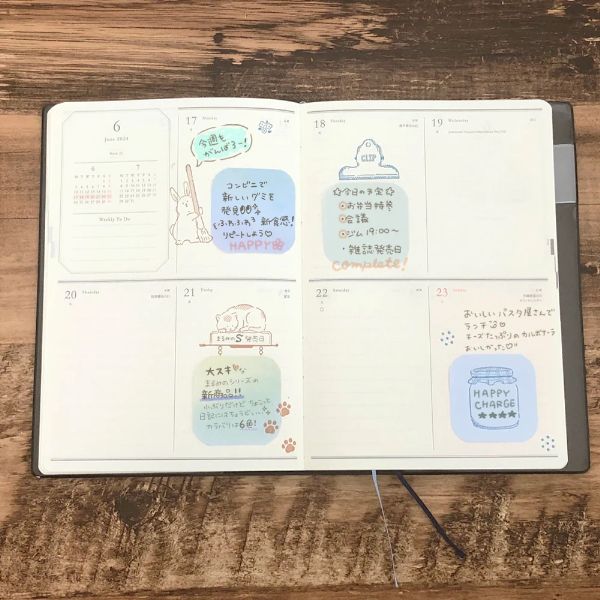 6
June 2024
6
7
Weekly To Do
17
Monday
今週も
がんばろー!
コンビニで
新しいグミを
発見
ふわふわ 新食感!
リピートしよう♡
HAPPY
18
Tuesday
CLIP
☆今日の予定☆
お弁当持参
会議
ジム 19:00〜
・雑誌発売日
complete!
19
Wednesday
20
Thursday
21
Friday
まるみのS発売日
大スキ♡な
まるみのシリーズの
新商品!!
小ぶりだけど ちょこっと
日記にはちょうどいい
カラバリは6色!
22
Saturday
23
おいしいパスタ屋さんで
ランチ
チーズたっぷりのカルボナーラ
おいしかった♡
HAPPY
CHARGE
★★★★